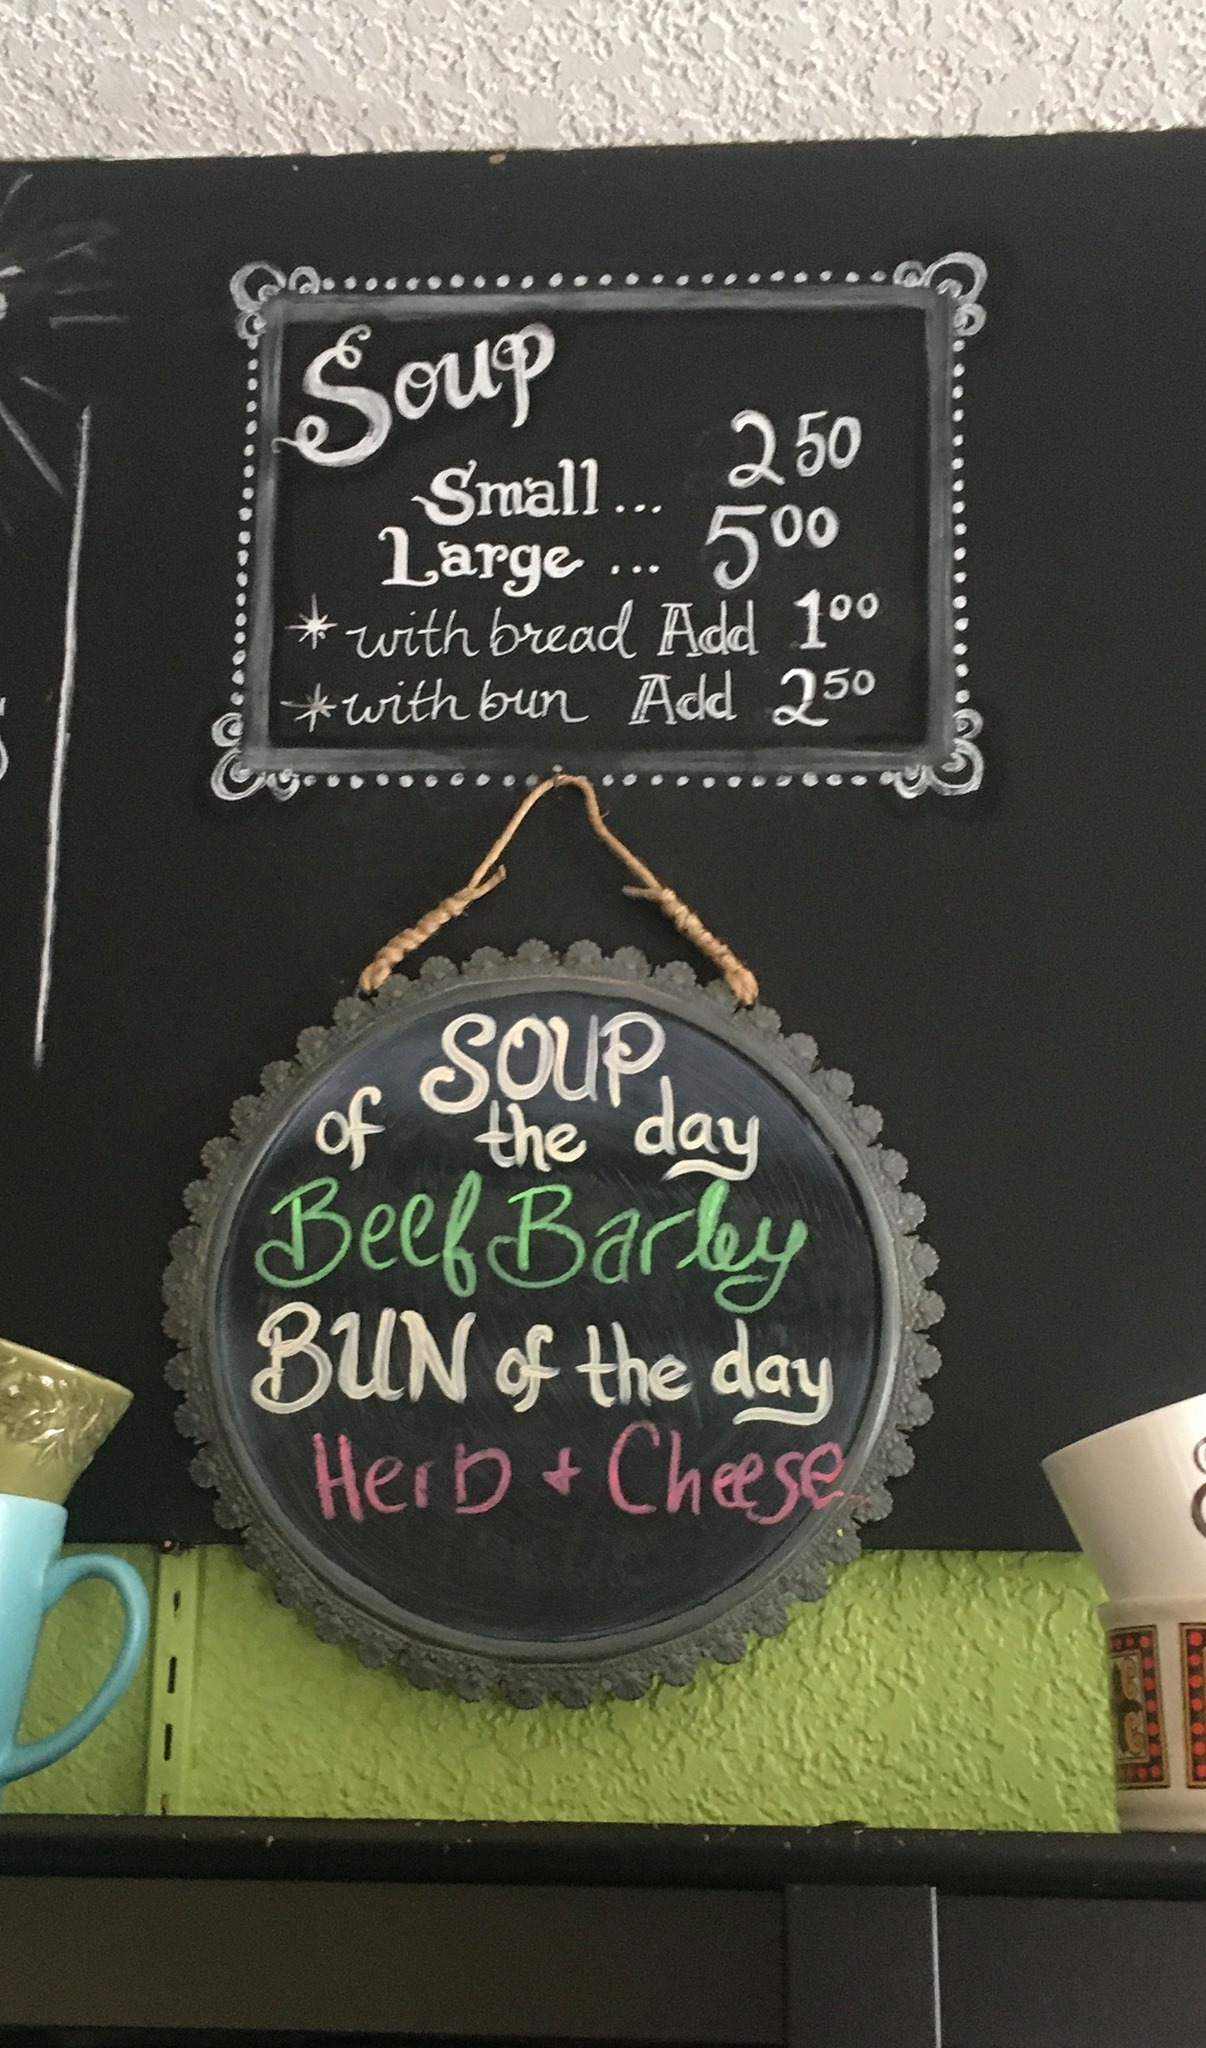 Soup
Small ... 2 50
Large ... 5 00
*with bread Add 1 00
*with bun Add 2 50
SOUP
of the day
Beef Barley
BUN of the day
Herb + Cheese